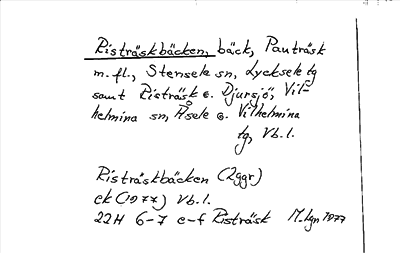 Risträskbäcken, bäck, Pauträsk
m.fl., Stensele sn, Lycksele tg
samt Risträsk o. Djursjö, Vil-
helmina sn, Åsele o. Vilhelmina
tg, Vb.l.
Risträskbäcken (2ggr)
ek (1977) Vb.l.
22H 6-7 e-f Risträsk M.lgn 1977